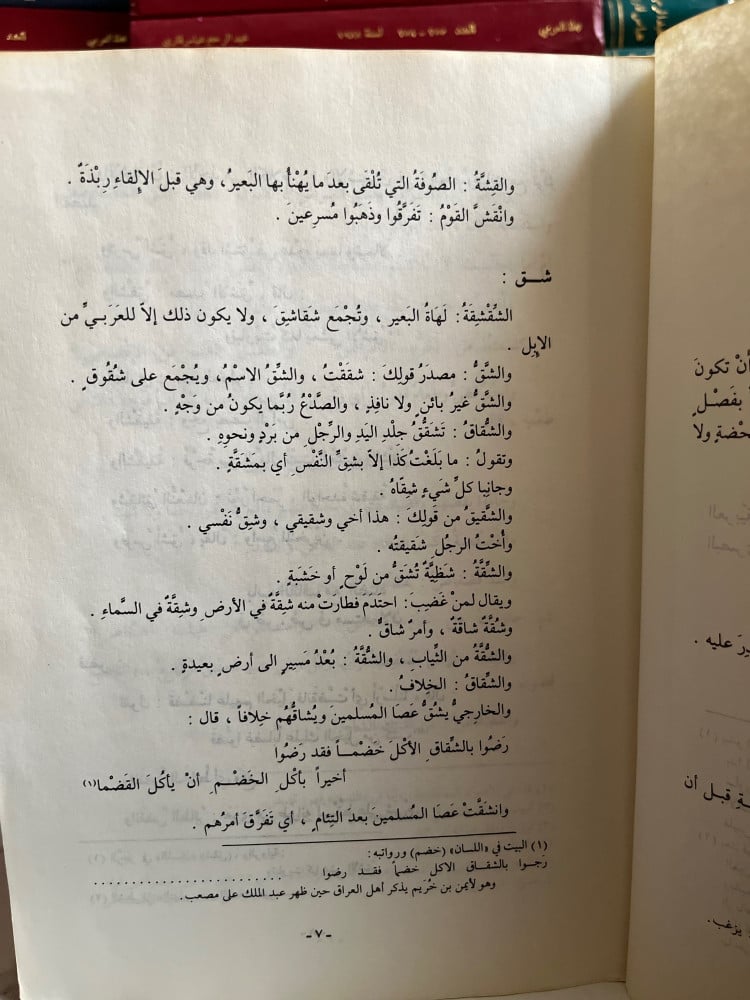 العدد
مجلة العربي
العدد
مجلة العربي
والقِشَّةُ : الصوفَةُ التي تُلْقَى بعدَ ما يُهْنأُ بها البَعيرُ، وهي قبلَ الإلقاءِ رِبْذَةٌ .
وانْقَشَّ القَوْمُ : تَفَرَّقُوا وذَهَبُوا مُسرِعينَ .
شــق :
الشِّقْشِقَةُ : لَهَاةُ البَعير ، وتُجْمَع شَقاشِقَ ، ولا يكون ذلك إلاّ للعَرَبيِّ من
الإبِل .
والشَّقُّ : مصدَرُ قولِكَ : شَقَقْتُ ، والشِّقُّ الاسْمُ، ويُجْمَع على شُقُوقٍ .
والشَّقُّ غيرُ بائنٍ ولا نافِذٍ ، والصَّدْعُ رُبَّما يكونُ من وَجْهٍ .
والشُّقاقُ : تَشَقُّقُ جلْدِ اليَدِ والرِّجْلِ من بَرْدٍ ونحوِهِ .
وتقولُ : ما بَلَغْتُ كَذا إلاّ بشِقِّ النَّفْسِ أي بمَشَقَّةٍ .
وجانِبا كلِّ شَيءٍ شِقّاهُ .
والشَّقيقُ من قَولِكَ : هذا أخي وشَقيقي ، وشِقُّ نَفْسي .
وأُخْتُ الرجُلِ شَقيقتُه .
والشِّقَّةُ : شَظِيَّةٌ تُشَقُّ من لَوْحٍ أو خَشَبَةٍ .
ويقال لمنْ غَضِبَ : احتَدَمَ فطارَتْ منه شِقةٌ في الأرضِ وشِقَّةٌ في السَّماءِ .
وشُقَّةٌ شاقَّةٌ ، وأمرٌ شاقٌّ .
والشُّقَّةُ من الثِّيابِ ، والشُّقَّةُ : بُعْدُ مَسيرٍ الى أرضٍ بعيدةٍ .
والشِّقاقُ : الخِلافُ .
والخارِجيُّ يشُقُّ عَصَا المُسلمينَ ويُشاقُّهُم خِلافاً ، قال :
رَضُوا بالشِّقاقِ الأكْلَ خَضْمــاً فقد رَضُوا
أخيراً بأكْلِ الخَضْمِ أنْ يأكُلَ القَضْما(١)
وانشَقَّتْ عَصَا المُسلمينَ بعدَ التِئامٍ ، أي تَفَرَّقَ أمرُهُم .
(١) البيت في «اللسان» (خضم) وروايته :
رجــوا بالشقاق الاكل خضماً فقــد رضوا . . . . . . . . . . . . . . . . . . . . . . . .
وهو لأيمن بن خُرَيم يذكر أهل العراق حين ظهر عبد الملك على مصعب .
- ٧ -
أنْ تكونَ
بفَصْلٍ
ولا
عليه .
قبل أن
يزغب .